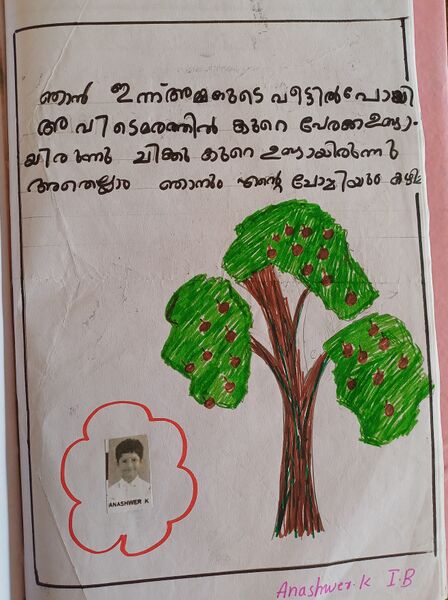 ഞാൻ ഇന്ന് അമ്മയുടെ വീട്ടിൽ പോയി
അവിടെ മരത്തിൽ കുറെ പേരക്ക ഉണ്ടാ
യിരുന്നു ചിക്കു കുറെ ഉണ്ടായിരുന്നു
അതെല്ലാം ഞാനും എന്റെ ചേച്ചിയും കഴി
ANASHWER K
Anashwer.K I.B